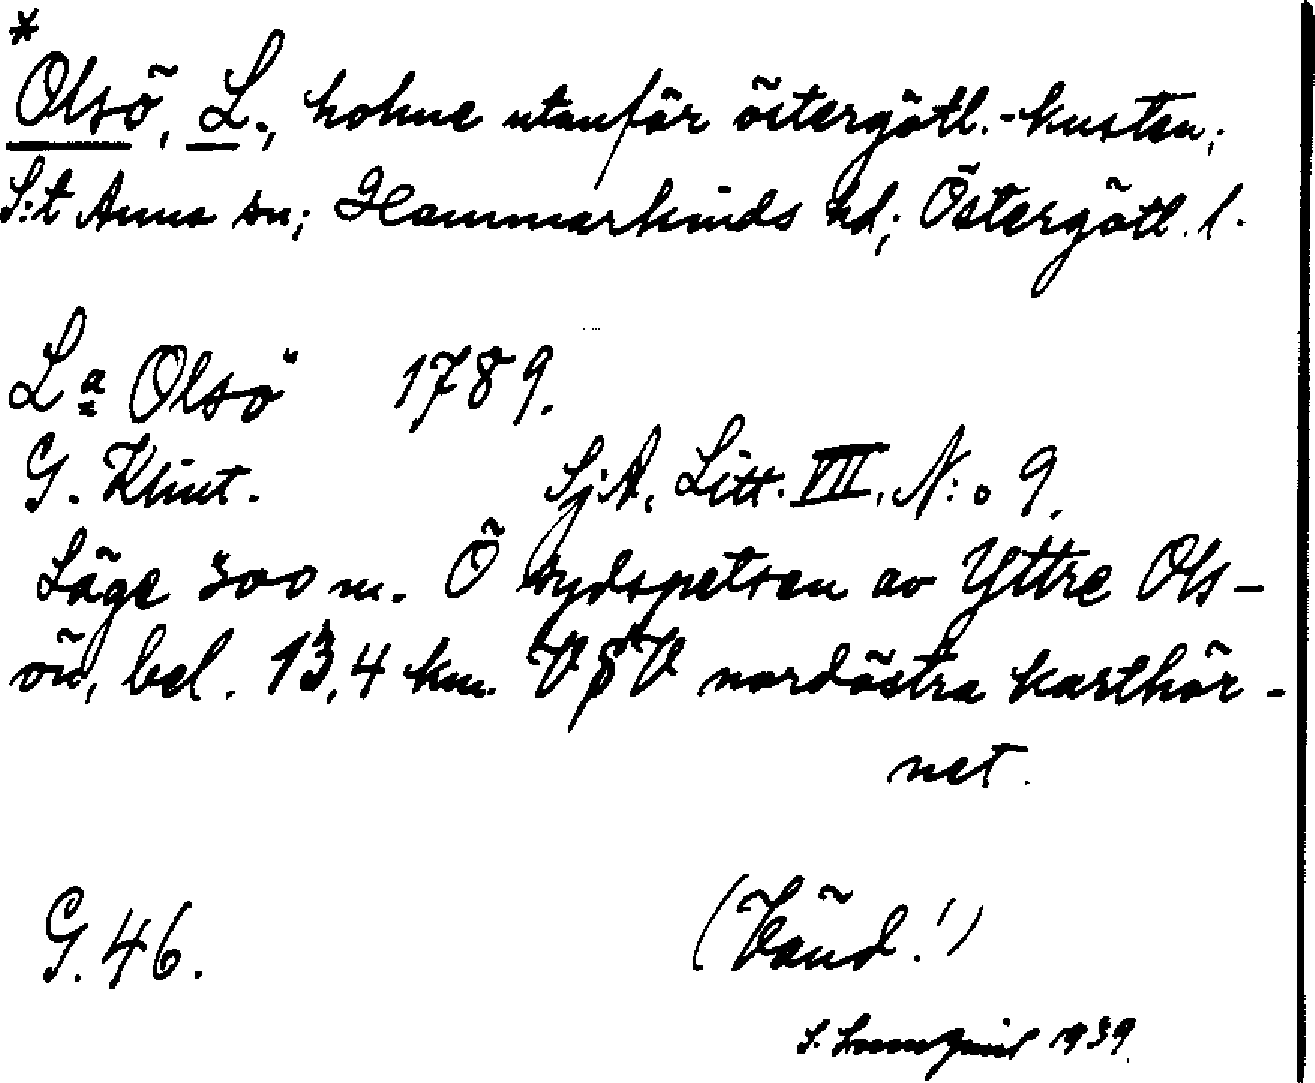 *
Olsö, L., holme utanför östergötl.-kusten,
S:t Anna sn; Hammarkinds hd; Östergötl. l.
La Olsö 1789.
G. Klint. Sj.A. Litt. VII. N:o 9.
Läge 300 m. Ö sydspetsen av Yttre Ols-
ön, bel. 13,4 km. VSV nordöstra karthör-
net.
G. 46. (Vänd!)
S. 1939.